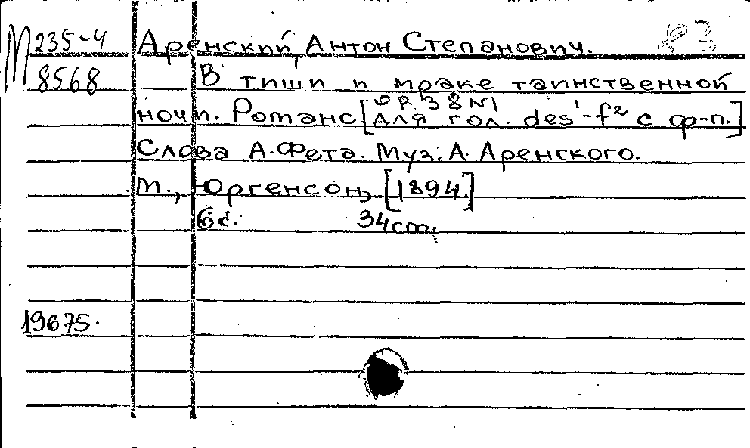 М 235-4 Аренский, Антон Степанович.
8568 В тиши и мраке таинственной
ор. 38 №1
ночи. Романс [для гол. des¹-f² с ф-п.]
Слова А. Фета. Муз. А. Аренского.
М., Юргенсон, [1894.]
6 с. 34 см.
19675.